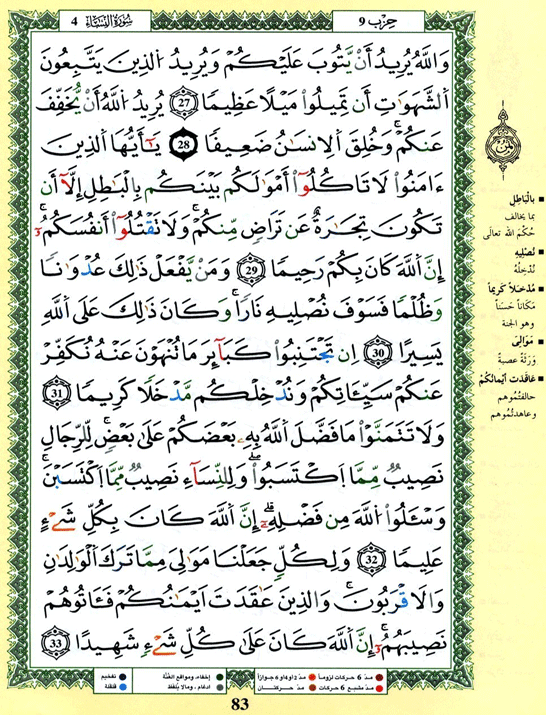 سُورَةُ النِّسَاءِ 4
حِزْب 9
وَاللَّهُ يُرِيدُ أَنْ يَّتُوبَ عَلَيْكُمْ وَيُرِيدُ الذِينَ يَتَّبِعُونَ
اَلشَّهَوَٰتِ أَن تَمِيلُواْ مَيْلًا عَظِيمًا 27 يُرِيدُ اُللَّهُ أَنْ يُّخَفِّفَ
عَنكُمْ وَخُلِقَ اَلِانسَٰنُ ضَعِيفًا 28 يَٰأَيُّهَا اَلذِينَ
ءَامَنُواْ لَا تَاكُلُواْ أَمْوَٰلَكُم بَيْنَكُم بِالْبَٰطِلِ إِلَّا أَن
تَكُونَ تِجَٰرَةٌ عَن تَرَاضٍ مِّنكُمْ وَلَا تَقْتُلُواْ أَنفُسَكُمْ
إِنَّ اَللَّهَ كَانَ بِكُمْ رَحِيمًا 29 وَمَنْ يَّفْعَلْ ذَٰلِكَ عُدْوَٰنًا
وَظُلْمًا فَسَوْفَ نُصْلِيهِ نَارًا وَكَانَ ذَٰلِكَ عَلَى اَللَّهِ
يَسِيرًا 30 إِن تَجْتَنِبُواْ كَبَآئِرَ مَا تُنْهَوْنَ عَنْهُ نُكَفِّرْ
عَنكُمْ سَيِّـَٔاتِكُمْ وَنُدْخِلْكُم مَّدْخَلًا كَرِيمًا 31
وَلَا تَتَمَنَّوْاْ مَا فَضَّلَ اَللَّهُ بِهِۦ بَعْضَكُمْ عَلَىٰ بَعْضٍ لِّلرِّجَالِ
نَصِيبٌ مِّمَّا اَكْتَسَبُواْ وَلِلنِّسَآءِ نَصِيبٌ مِّمَّا اَكْتَسَبْنَ
وَسْـَٔلُواْ اُللَّهَ مِن فَضْلِهِۦ إِنَّ اَللَّهَ كَانَ بِكُلِّ شَےْءٍ
عَلِيمًا 32 وَلِكُلٍّ جَعَلْنَا مَوَٰلِيَ مِمَّا تَرَكَ اَلْوَٰلِدَٰنِ
وَالَاقْرَبُونَ وَالذِينَ عَٰقَدَتَ اَيْمَٰنُكُمْ فَـَٔاتُوهُمْ
نَصِيبَهُمْ إِنَّ اَللَّهَ كَانَ عَلَىٰ كُلِّ شَےْءٍ شَهِيدًا 33
بِالْبَاطِلِ
بما يخالف
حُكْمُ الله تعالَى
نُصْلِيهِ
نُدْخِلُهُ
مُدْخَلاً كَرِيماً
مَكَاناً حَسَناً
وهو الجنة
مَوَالِيَ
وَرَثَةً عصبةً
عَاقَدَت أيْمانُكُمْ
حالفتُمُوهم
وعاهدتُموهم
مدّ 6 حركات لزوماً
مدّ 2 أو 4 أو 6 جوازاً
إخفاء، ومواقع الغُنَّة
تفخيم
مدّ مشبع 6 حركات
مدّ حركتان
ادغام، وما لا يُلفظ
قلقلة
83